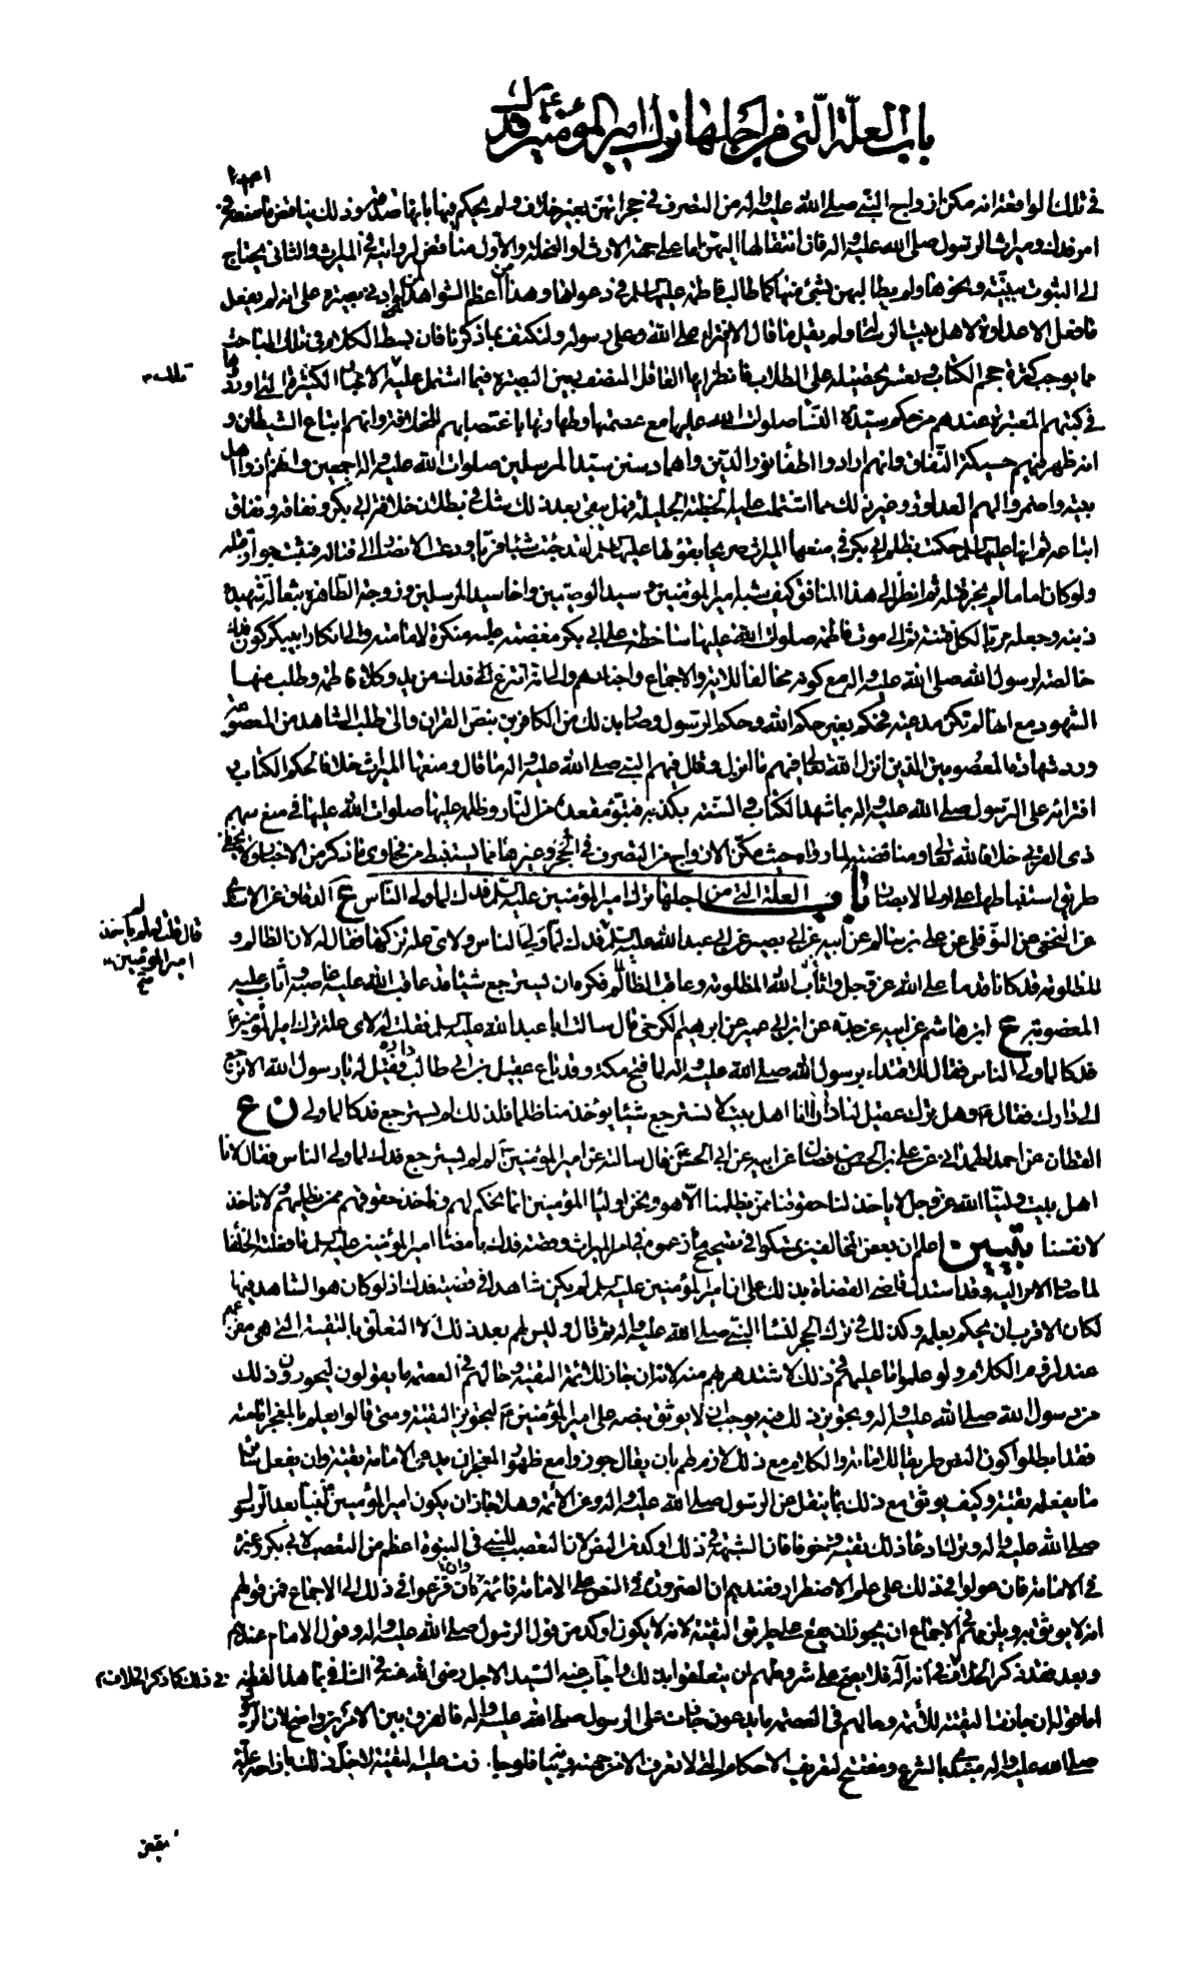 باب العلة التي من اجلها ترك امير المؤمنين فدك
في تلك الواقعة انه مكن ازواج النبي صلى الله عليه واله من التصرف في حجراتهن بغير خلاف ولم يحكم فيها بانها صدقة وذلك يناقض ما صنعه في
امر فدك وميراث الرسول صلى الله عليه واله فان انتقالها اليهن اما على جهة الارث او النحلة والاول مناقض لروايته في الميراث والثاني يحتاج
الى الثبوت ببينة ونحوها ولم يطالبهن بشئ منها كما طالب فاطمة عليها السلم في دعواها وهذا من اعظم الشواهد لمن له ادنى بصيرة على انه لم يفعل
ما فعل الا عداوة لاهل بيت الرسالة ولم يقل ما قال الا افتراء على الله وعلى رسوله ولنكتف بما ذكرنا فان بسط الكلام في تلك المباحث
مما يوجب كثرة حجم الكتاب وتعسر تحصيله على الطلاب فانظر ايها العاقل المنصف بعين البصيرة فيما اشتمل عليه الاخبار الكثيرة التي اوردوها
في كتبهم المعتبرة عندهم من حكم سيدة النساء صلوات الله عليها مع عصمتها وطهارتها باغتصابهم للخلافة وانهم اتباع الشيطان و
انه ظهر فيهم حسيكة النفاق وانهم ارادوا اطفاء نور الدين واهماد سنن سيد المرسلين صلوات الله عليه واله اجمعين وانهم اذوا اهل
بيته واضمروا لهم العداوة وغير ذلك مما اشتملت عليه الخطبة الجليلة فهل يبقى بعد ذلك شك في بطلان خلافة ابي بكر ونفاقه ونفاق
اتباعه ثم انها عليها السلم حكت بظلم ابي بكر في منعها الميراث صريحا بقولها عليها السلم لقد جئت شيئا فريا ودعت الانصار الى قتاله فثبت جواز قتله
ولو كان اماما لم يجز قتله ثم انظر الى هذا المنافق كيف شبه امير المؤمنين وسيد الوصيين واخا سيد المرسلين وزوجه الطاهرة بثعالة شهيده
ذنبه وجعله مربا لكل فتنة ثم الى موت فاطمة صلوات الله عليها ساخطة على ابي بكر مغضبة عليه منكرة لامامته والى انكار ابي بكر كون فدك
خالصة لرسول الله صلى الله عليه واله مع كونه مخالفا للاية والاجماع واخبارهم والى انه انتزع فدك من يد وكلاء فاطمة وطلب منها
الشهود مع انها لم تكن مدعية فحكم بغير حكم الله وحكم الرسول وصار بذلك من الكافرين بنص القران والى طلب الشاهد من المعصومة
ورد شهادة المعصومين الذين انزل الله تعالى فيهم ما انزل وقال فيهم النبي صلى الله عليه واله ما قال ومنعها الميراث خلافا لحكم الكتاب و
افترائه على الرسول صلى الله عليه واله بما شهد الكتاب والسنة بكذبه فتبوء مقعده من النار وظلمه عليها صلوات الله عليها في منع سهم
ذي القربى خلافا لله تعالى ومناقضته لما رواه حيث مكن الازواج من التصرف في الحجر وغيرها مما يستنبط من فحاوى ما ذكر من الاخبار ولا يخفى
طريق استنباطها على اولى الابصار باب العلة التي من اجلها ترك امير المؤمنين عليه السلم فدك لما ولي الناس ع الدقاق عن الاسدي
عن النخعي عن النوفلي عن علي بن سالم عن ابيه عن ابي بصير عن ابي عبد الله عليه السلم فدك لما ولي الناس ولاي علة تركها فقال له لان الظالم و
قال قلت له لم لم ياخذ امير المؤمنين صح
المظلومة قد كانا قدما على الله عز وجل واثاب الله المظلومة وعاقب الظالم فكره ان يسترجع شيئا قد عاقب الله عليه غاصبه واثاب عليه
المغصوبة ع ابن هاشم عن ابيه عن جده عن ابن ابي عمير عن ابرهيم الكرخي قال سالت ابا عبد الله عليه السلم فقلت له لاي علة ترك امير المؤمنين ع
فدكا لما ولي الناس فقال للاقتداء برسول الله صلى الله عليه واله لما فتح مكة وقد باع عقيل بن ابي طالب داره فقيل له يا رسول الله الا ترجع
الى دارك فقال ص وهل ترك عقيل لنا دارا انا اهل بيت لا نسترجع شيئا يؤخذ منا ظلما فلذلك لم يسترجع فدكا لما ولي ن ع
القطان عن احمد الهمداني عن علي بن الحسن بن فضال عن ابيه عن ابي الحسن ع قال سالته عن امير المؤمنين ع لم لم يسترجع فدك لما ولي الناس فقال لانا
اهل بيت ولينا الله عز وجل لا ياخذ لنا حقوقنا ممن يظلمنا الا هو ونحن اولياء المؤمنين انما نحكم لهم وناخذ حقوقهم ممن يظلمهم ولا ناخذ
لانفسنا تبيين اعلم ان بعض المخالفين تمسكوا في تصحيح ما زعموه في امر الميراث وقصة فدك بامضاء امير المؤمنين عليه السلم ما فعلته الخلفاء
لما صار الامر اليه وقد استدل قاضي القضاة بذلك على ان امير المؤمنين عليه السلم لم يكن شاهدا في قضية فدك اذ لو كان هو الشاهد فيها
لكان الاقرب ان يحكم بعلمه وكذلك في ترك الحجر لنساء النبي صلى الله عليه واله ثم قال وليس لهم بعد ذلك الا التعلق بالتقية التي هي مفزعهم
عند لزوم الكلام ولو علموا ما عليهم في ذلك لاشتد هربهم منه لانه ان جاز للائمة التقية وحالهم في العصمة ما يقولون ليجوزن ذلك
من رسول الله صلى الله عليه واله وتجويز ذلك فيه يوجب ان لا يوثق بنصه على امير المؤمنين ع لتجويز التقية ومتى قالوا يعلم بالمعجز امامته
فقد ابطلوا كون النص طريقا للامامة والكلام مع ذلك لازم لهم بان يقال جوزوا مع ظهور المعجز ان يدعي الامامة تقية وان يفعل سائر
ما يفعله تقية وكيف يوثق مع ذلك بما ينقل عن الرسول صلى الله عليه واله وعن الائمة وهلا جاز ان يكون امير المؤمنين ع نبيا بعد الرسول
صلى الله عليه واله وترك ادعاء ذلك تقية وخوفا فان الشبهة في ذلك اوكد من النص لان التعصب للنبي في النبوة اعظم من التعصب لابي بكر وغيره
في الامامة فان عولوا في ذلك على علم الاضطرار فعندهم ان الضرورة في النص على الامامة قائمة وان فزعوا في ذلك الى الاجماع فمن قولهم
انه لا يوثق به ويلزمهم في الاجماع ان يجوز ان يقع على طريق التقية لانه لا يكون اوكد من قول الرسول صلى الله عليه واله وقول الامام عندهم
وبعد فقد ذكر الخلاف في انه اله فلا يصح على شروطهم ان يتعلقوا بذلك واجاب عنه السيد الاجل رضي الله عنه في الشافي بما هذا لفظه
اما قوله ان جازت التقية للائمة وحالهم في العصمة ما يدعون جازت على الرسول صلى الله عليه واله فالفرق بين الامرين واضح لان الرسول
صلى الله عليه واله مبتدئ بالشرع ومفتتح لتعريف الاحكام التي لا تعرف الا من جهته وبيانه فلو جازت عليه التقية لاخل ذلك بازاحة علة